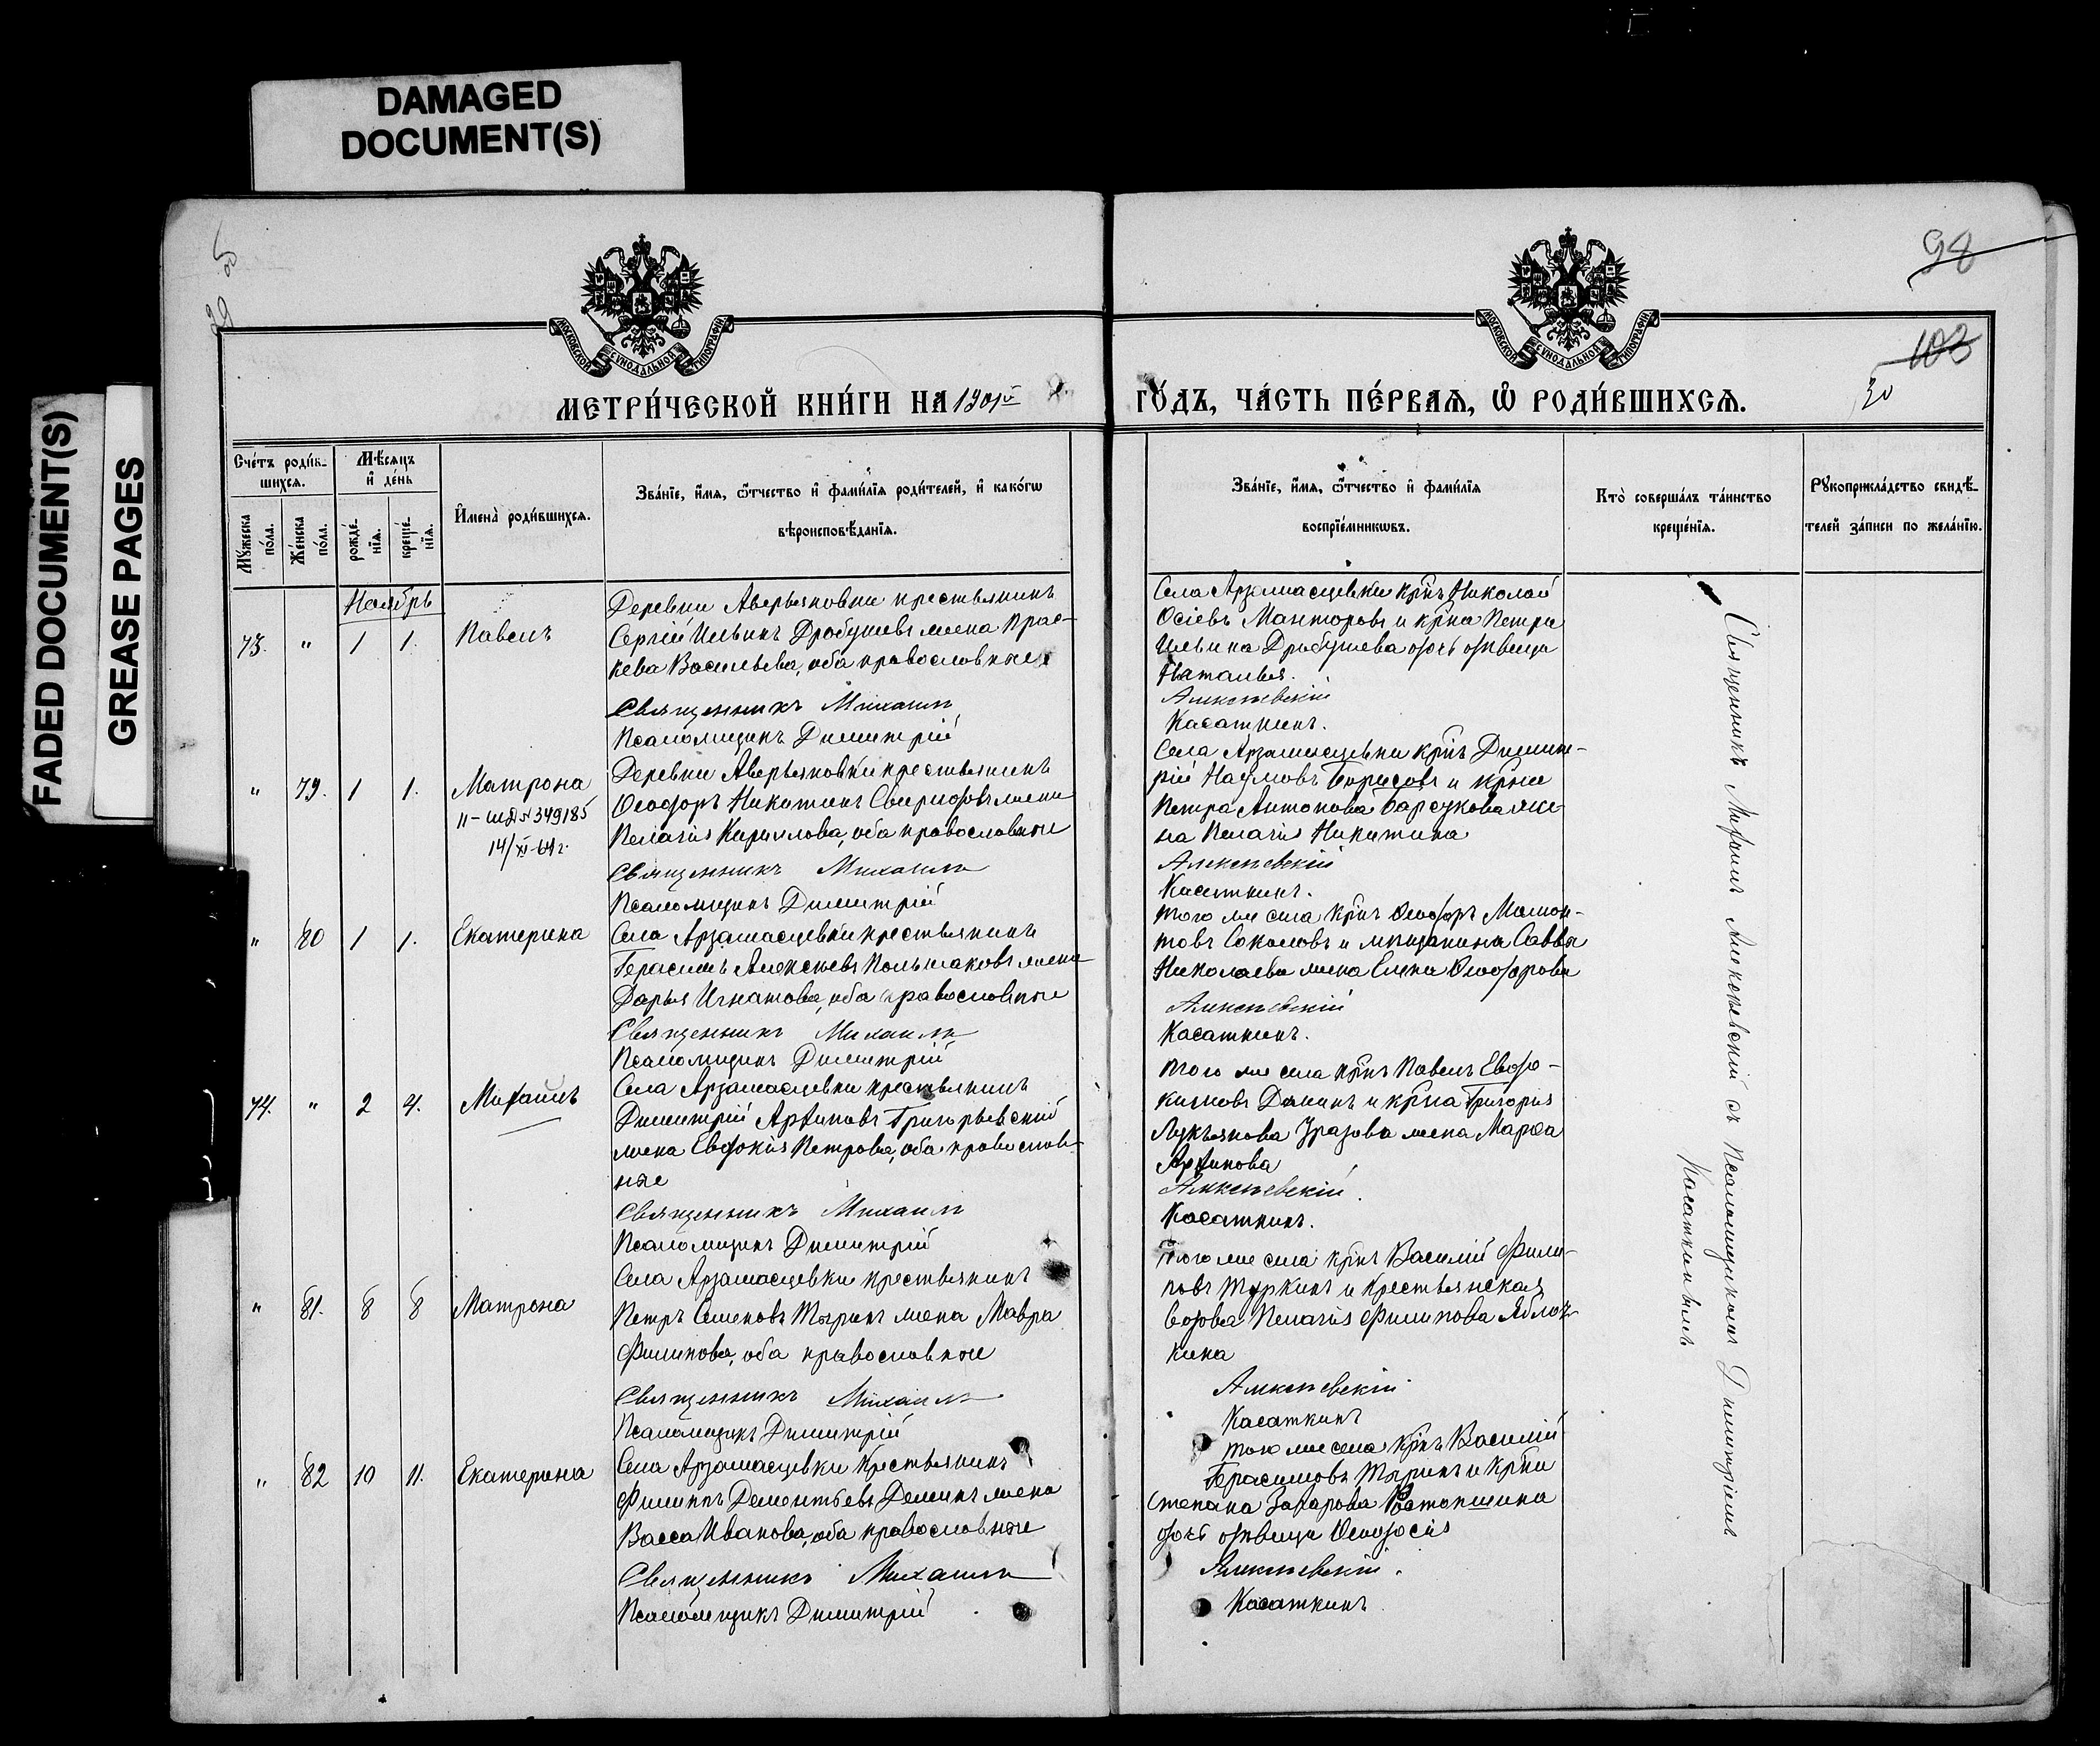 DAMAGED
DOCUMENT(S)
FADED DOCUMENT(S)
GREASE PAGES
98
103
30
МОСКОВСКОЙ СѴНОДАЛЬНОЙ ТИПОГРАФІИ
МОСКОВСКОЙ СѴНОДАЛЬНОЙ ТИПОГРАФІИ
МЕТРИ́ЧЕСКОЙ КНИ́ГИ НА 1901й
ГО́ДЪ, ЧА́СТЬ ПЕ́РВАѦ, Ѿ РОДИ́ВШИХСѦ.
Сче́тъ роди́в-
шихсѧ.
Мѣ́сѧцъ
и҆ де́нь
Му́жеска
по́ла.
Же́нска
по́ла.
рожде́-
нїѧ.
креще́-
нїѧ.
И҆мена̀ роди́вшихсѧ.
Зва́нїе, и҆́мѧ, ѻ҆́тчество и҆ фами́лїѧ роди́телей, и҆ како́гѡ
вѣроисповѣ́данїѧ.
Зва́нїе, и҆́мѧ, ѻ҆́тчество и҆ фами́лїѧ
воспрїе́мникѡвъ.
Кто̀ соверша́лъ та́инство
креще́нїѧ.
Рꙋкоприкла́дство свидѣ́-
телей за́писи по жела́нїю.
Ноябрь
73. " 1 1. Павелъ
Деревни Аверьяновки крестьянинъ
Сергій Ильинъ Дробушевъ жена Прас-
кева Васильева, оба православные
Священникъ Михаилъ
Псаломщикъ Димитрій
Села Арзамасцевки кр̃нъ Николай
Осіевъ Манторовъ и кр̃на Петра
Ильина Дробушева дочь дѣвица
Наталья.
Алексѣевскій
Касаткинъ.
" 79. 1 1. Матрона
II-ШД№349185
14/XI-64г.
Деревни Аверьяновки крестьянинъ
Ѳеодоръ Никитинъ Свиридовъ жена
Пелагія Кириллова, оба православные
Священникъ Михаилъ
Псаломщикъ Димитрій
Села Арзамасцевки кр̃нъ Димит-
рій Наумовъ Борисовъ и кр̃на
Петра Антонова Барсукова же-
на Пелагія Никитина
Алексѣевскій
Касаткинъ.
" 80 1 1. Екатерина
Села Арзамасцевки крестьянинъ
Герасимъ Алексѣевъ Польшаковъ жена
Дарья Игнатова, оба православные
Священникъ Михаилъ
Псаломщикъ Димитрій
того же села кр̃нъ Ѳеодоръ Мамон-
товъ Соколовъ и мѣщанина Саввы
Николаева жена Елена Ѳеодорова
Алексѣевскій
Касаткинъ.
74. " 2 4. Михаилъ
Села Арзамасцевки крестьянинъ
Димитрій Архиповъ Григорьевскій
жена Евдокія Петрова, оба православ-
ные
Священникъ Михаилъ
Псаломщикъ Димитрій
того же села кр̃нъ Павелъ Евдо-
кимовъ Данинъ и кр̃на Григорія
Лукьянова Уразова жена Марѳа
Архипова
Алексѣевскій.
Касаткинъ.
" 81. 8 8 Матрона
Села Арзамасцевки крестьянинъ
Петръ Семеновъ Тыринъ жена Мавра
Филипова, оба православные
Священникъ Михаилъ
Псаломщикъ Димитрій
того же села кр̃нъ Василій Фили-
повъ Туркинъ и крестьянская
вдова Пелагія Филипова Яблоч-
кина
Алексѣевскій
Касаткинъ
" 82 10 11. Екатерина
Села Арзамасцевки крестьянинъ
Филиппъ Дементьевъ Деминъ жена
Васса Иванова, оба православные
Священникъ Михаилъ
Псаломщикъ Димитрій
того же села кр̃нъ Василій
Герасимовъ Тыринъ и кр̃на
Степана Захарова Ростопшина
дочь дѣвица Ѳеодосія
Алексѣевскій.
Касаткинъ
Священникъ Михаилъ Алексѣевскій съ Псаломщикомъ Димитріемъ
Касаткинымъ